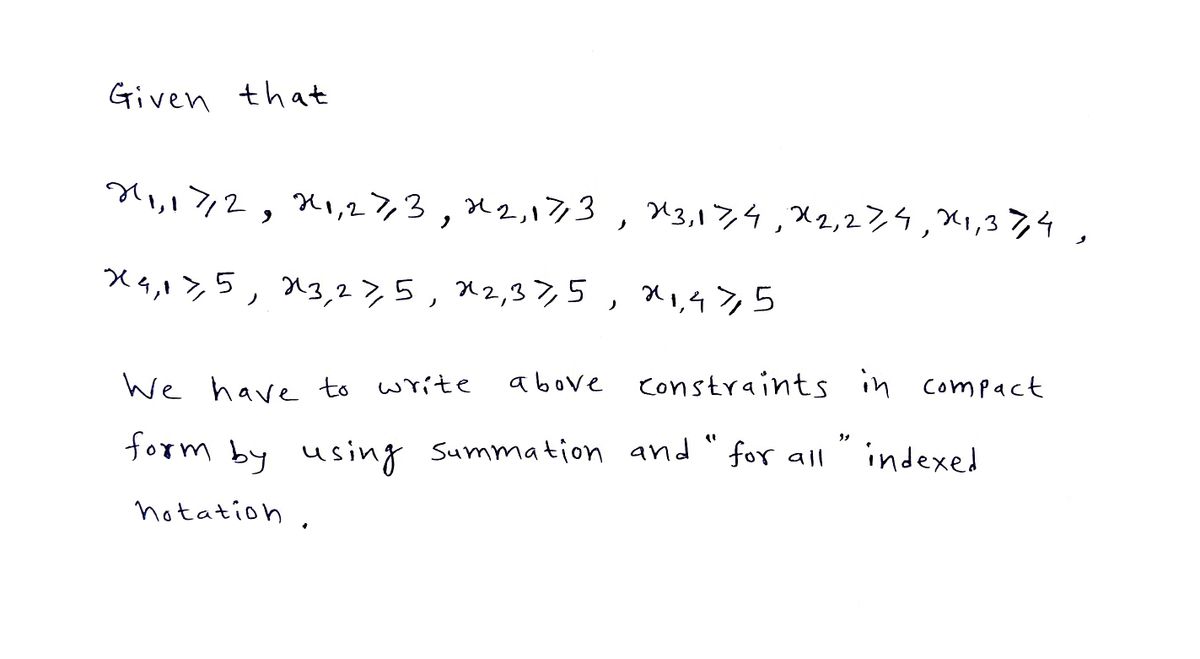 Given that
x₁,₁ ⩾ 2 , x₁,₂ ⩾ 3 , x₂,₁ ⩾ 3 , x₃,₁ ⩾ 4 , x₂,₂ ⩾ 4 , x₁,₃ ⩾ 4 ,
x₄,₁ ⩾ 5 , x₃,₂ ⩾ 5 , x₂,₃ ⩾ 5 , x₁,₄ ⩾ 5
We have to write above constraints in compact
form by using summation and "for all" indexed
notation .